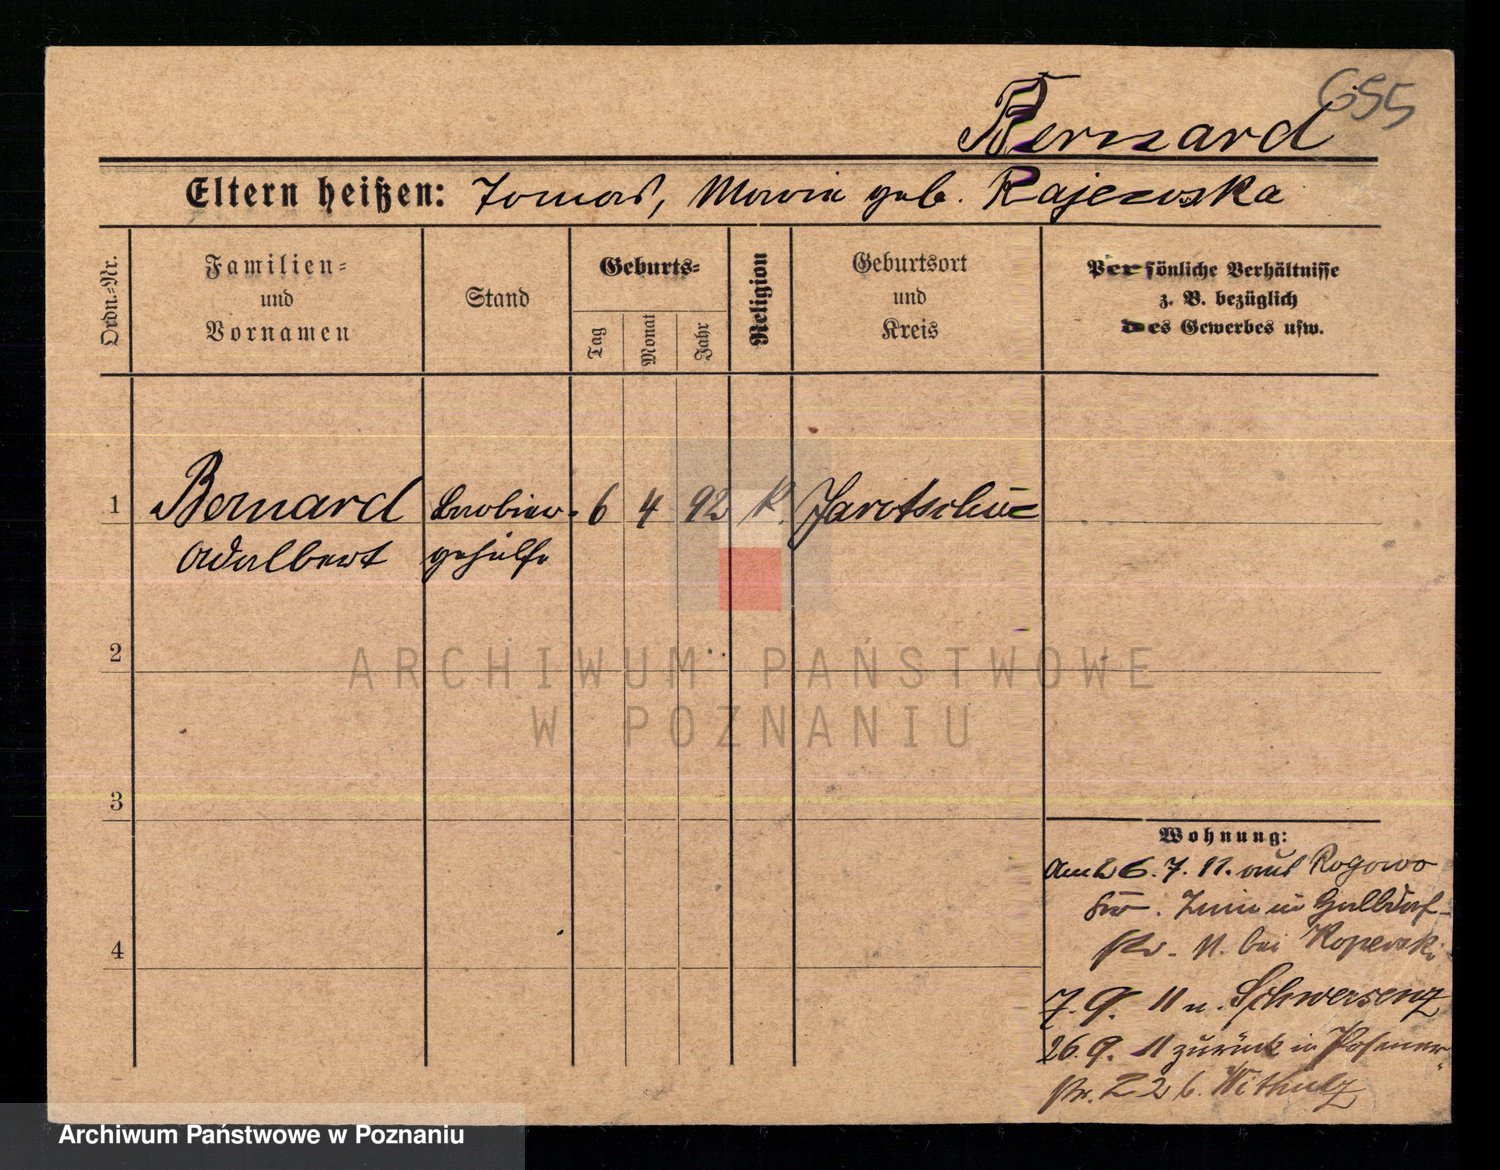 655
Bernard
Eltern heißen: Tomas, Maria geb. Rajewska
Ordn.-Nr.
Familien-
und
Vornamen
Stand
Geburts-
Tag
Monat
Jahr
Religion
Geburtsort
und
Kreis
Persönliche Verhältnisse
z. B. bezüglich
des Gewerbes usw.
1 Bernard 6 4 92 k. Jarotschin
Adalbert gehülfe
2
3
4
Wohnung:
Am 26. 7. 11. aus Rogowo
Kr. Znin in
str. 11. bei Koperski
7. 9. 11 n. Schwersenz
26. 9. 11 zurück in Posener
str. 22 b.
ARCHIWUM PAŃSTWOWE
W POZNANIU
Archiwum Państwowe w Poznaniu